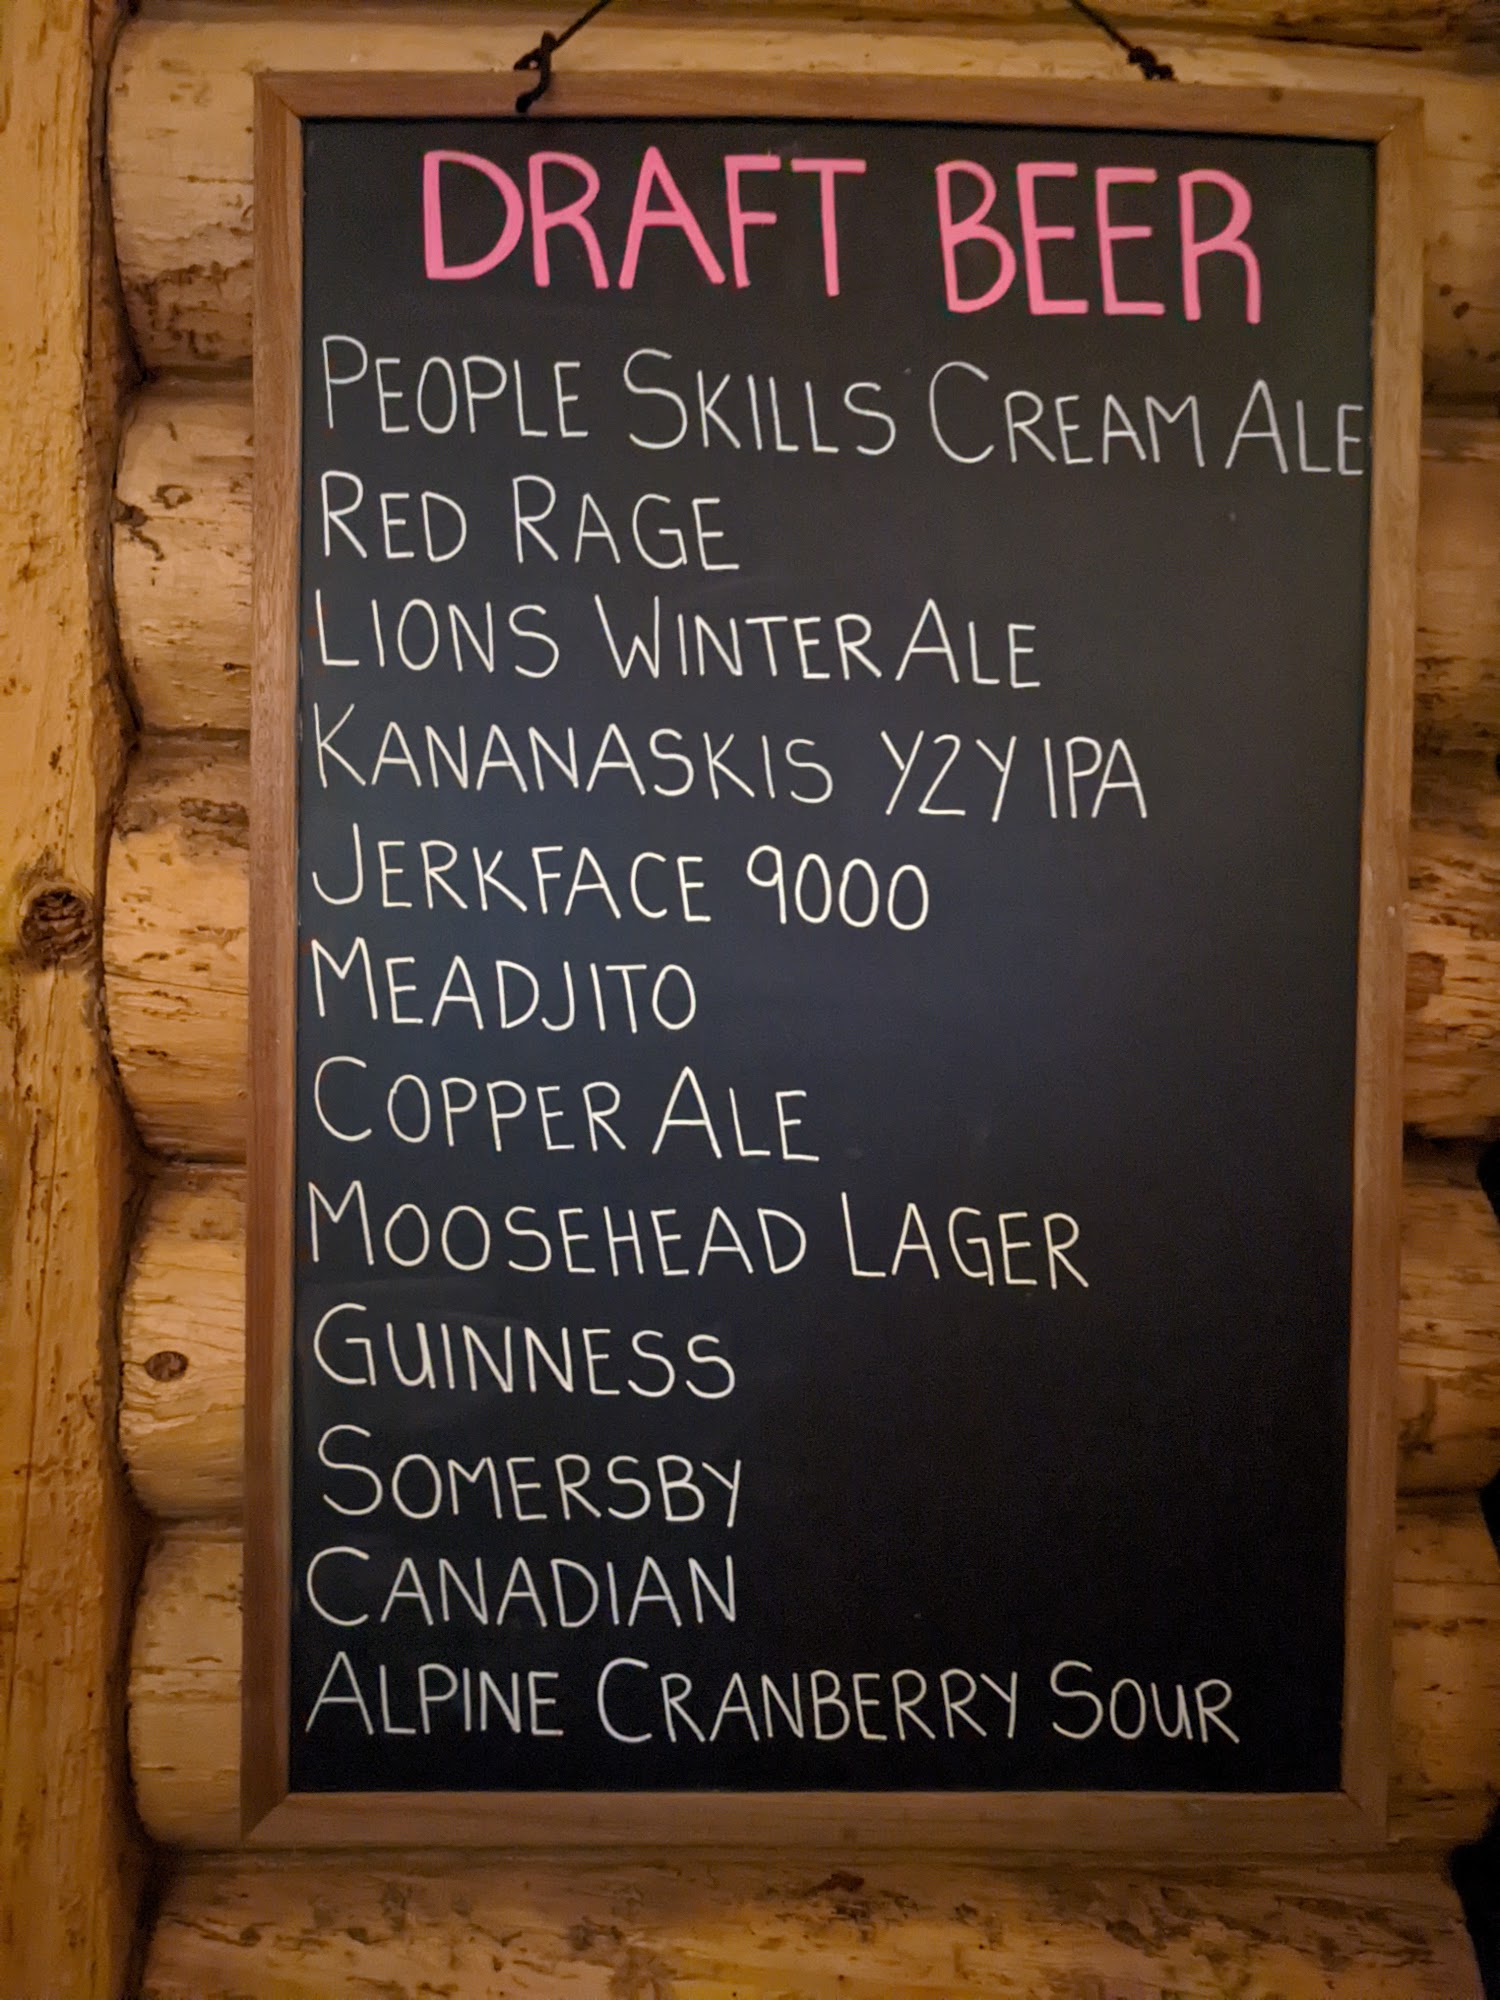 DRAFT BEER
PEOPLE SKILLS CREAM ALE
RED RAGE
LIONS WINTER ALE
KANANASKIS Y2Y IPA
JERKFACE 9000
MEADJITO
COPPER ALE
MOOSEHEAD LAGER
GUINNESS
SOMERSBY
CANADIAN
ALPINE CRANBERRY SOUR